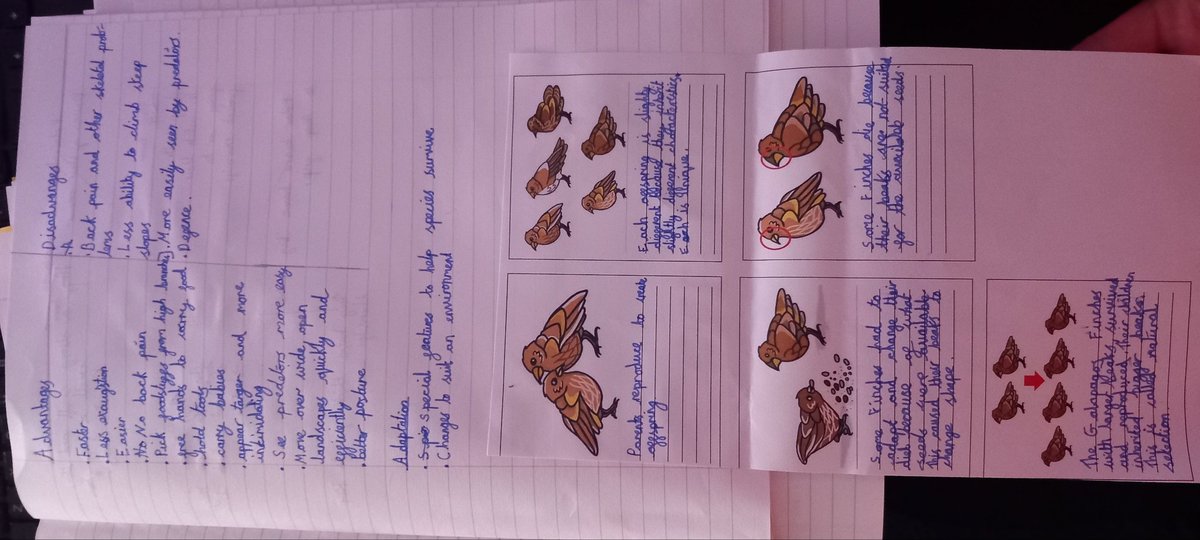 Advantages
• Faster
• Less
• Easier
No back pain
• Pick from high branches
free hands to carry food
• hold tools
• carry babies
• appear larger and more
intimidating
• See predators more easy
• Move over wide open
landscapes quickly and
efficiently
• better posture
Disadvanges
• Back pain and other skeletal prob-
lems
• Less ability to climb steep
slopes
• More easily seen by predators
• Degence.
Adaptation
• Special features to help species survive
• Changes to suit an environment
Parents reproduce to make
offspring
Each offspring is slightly
different because they inherit
slightly different characteristics.
Each is Unique.
Some Finches had to
adapt and change their
diet because of what
seeds were available
This caused their beaks to
change shape.
Some Finches die because
their beaks are not suited
for the available seeds.
The Galapagos Finches
with larger beaks survived
and reproduced, their children
inherited bigger beaks.
This is called natural
selection